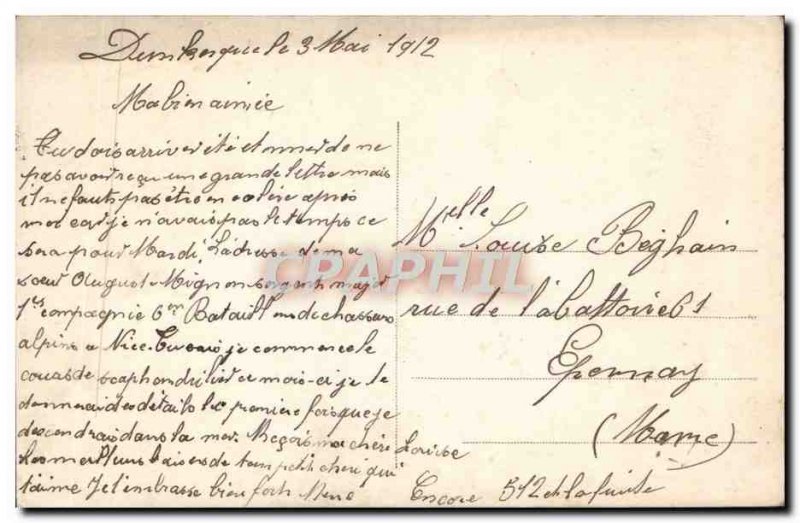 Dunkerque le 3 Mai 1912
Ma bien aimée
Tu dois arriver été et de ne
pas avoir reçu une grande lettre mais
il ne fauts pas être en colère après
moi car je n'avais pas le temps ce
sera pour Mardi, L'adresse de ma
soeur August Mignon sergent major
1re compagnie 6em Bataillon de chasseurs
alpins a Nice. Tu sais je commence le
cours de scaphandrier ce mois-ci je te
donnerai des détails la première fois que je
descendrais dans la mer. Reçois ma chère Louise
Les meilleurs baisers de ton petit cheri qui
t'aime Je t'embrasse bien fort
Encore 512 et la suite
Melle Louise Beghain
rue de l'abattoire 61
Epernay
(Marne)
CPAPHIL